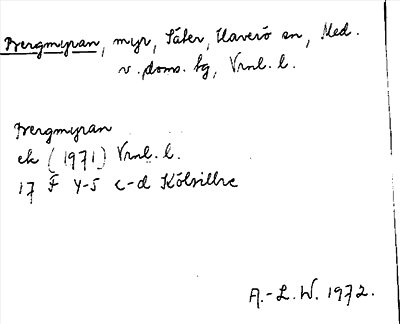 Bergmyran, myr, Säter, Haverö sn, Med.
v. doms. hg, Vrnl. l.
Bergmyran
ek (1971) Vrnl. l.
17 F 4-5 c-d Kölsillre
A.-L. W. 1972.